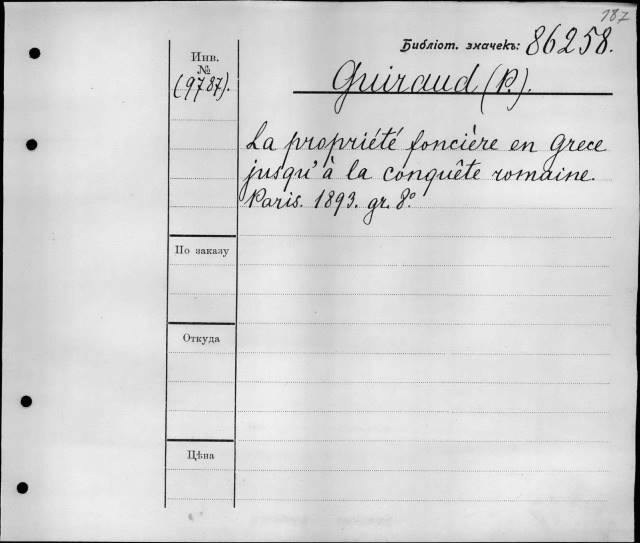 187
Библіот. значекъ: 86258.
Инв.
№
(9787).
Guiraud (P.).
La propriété foncière en Grece
jusqu'à la conquête romaine.
Paris. 1893. gr. 8°
По заказу
Откуда
Цѣна